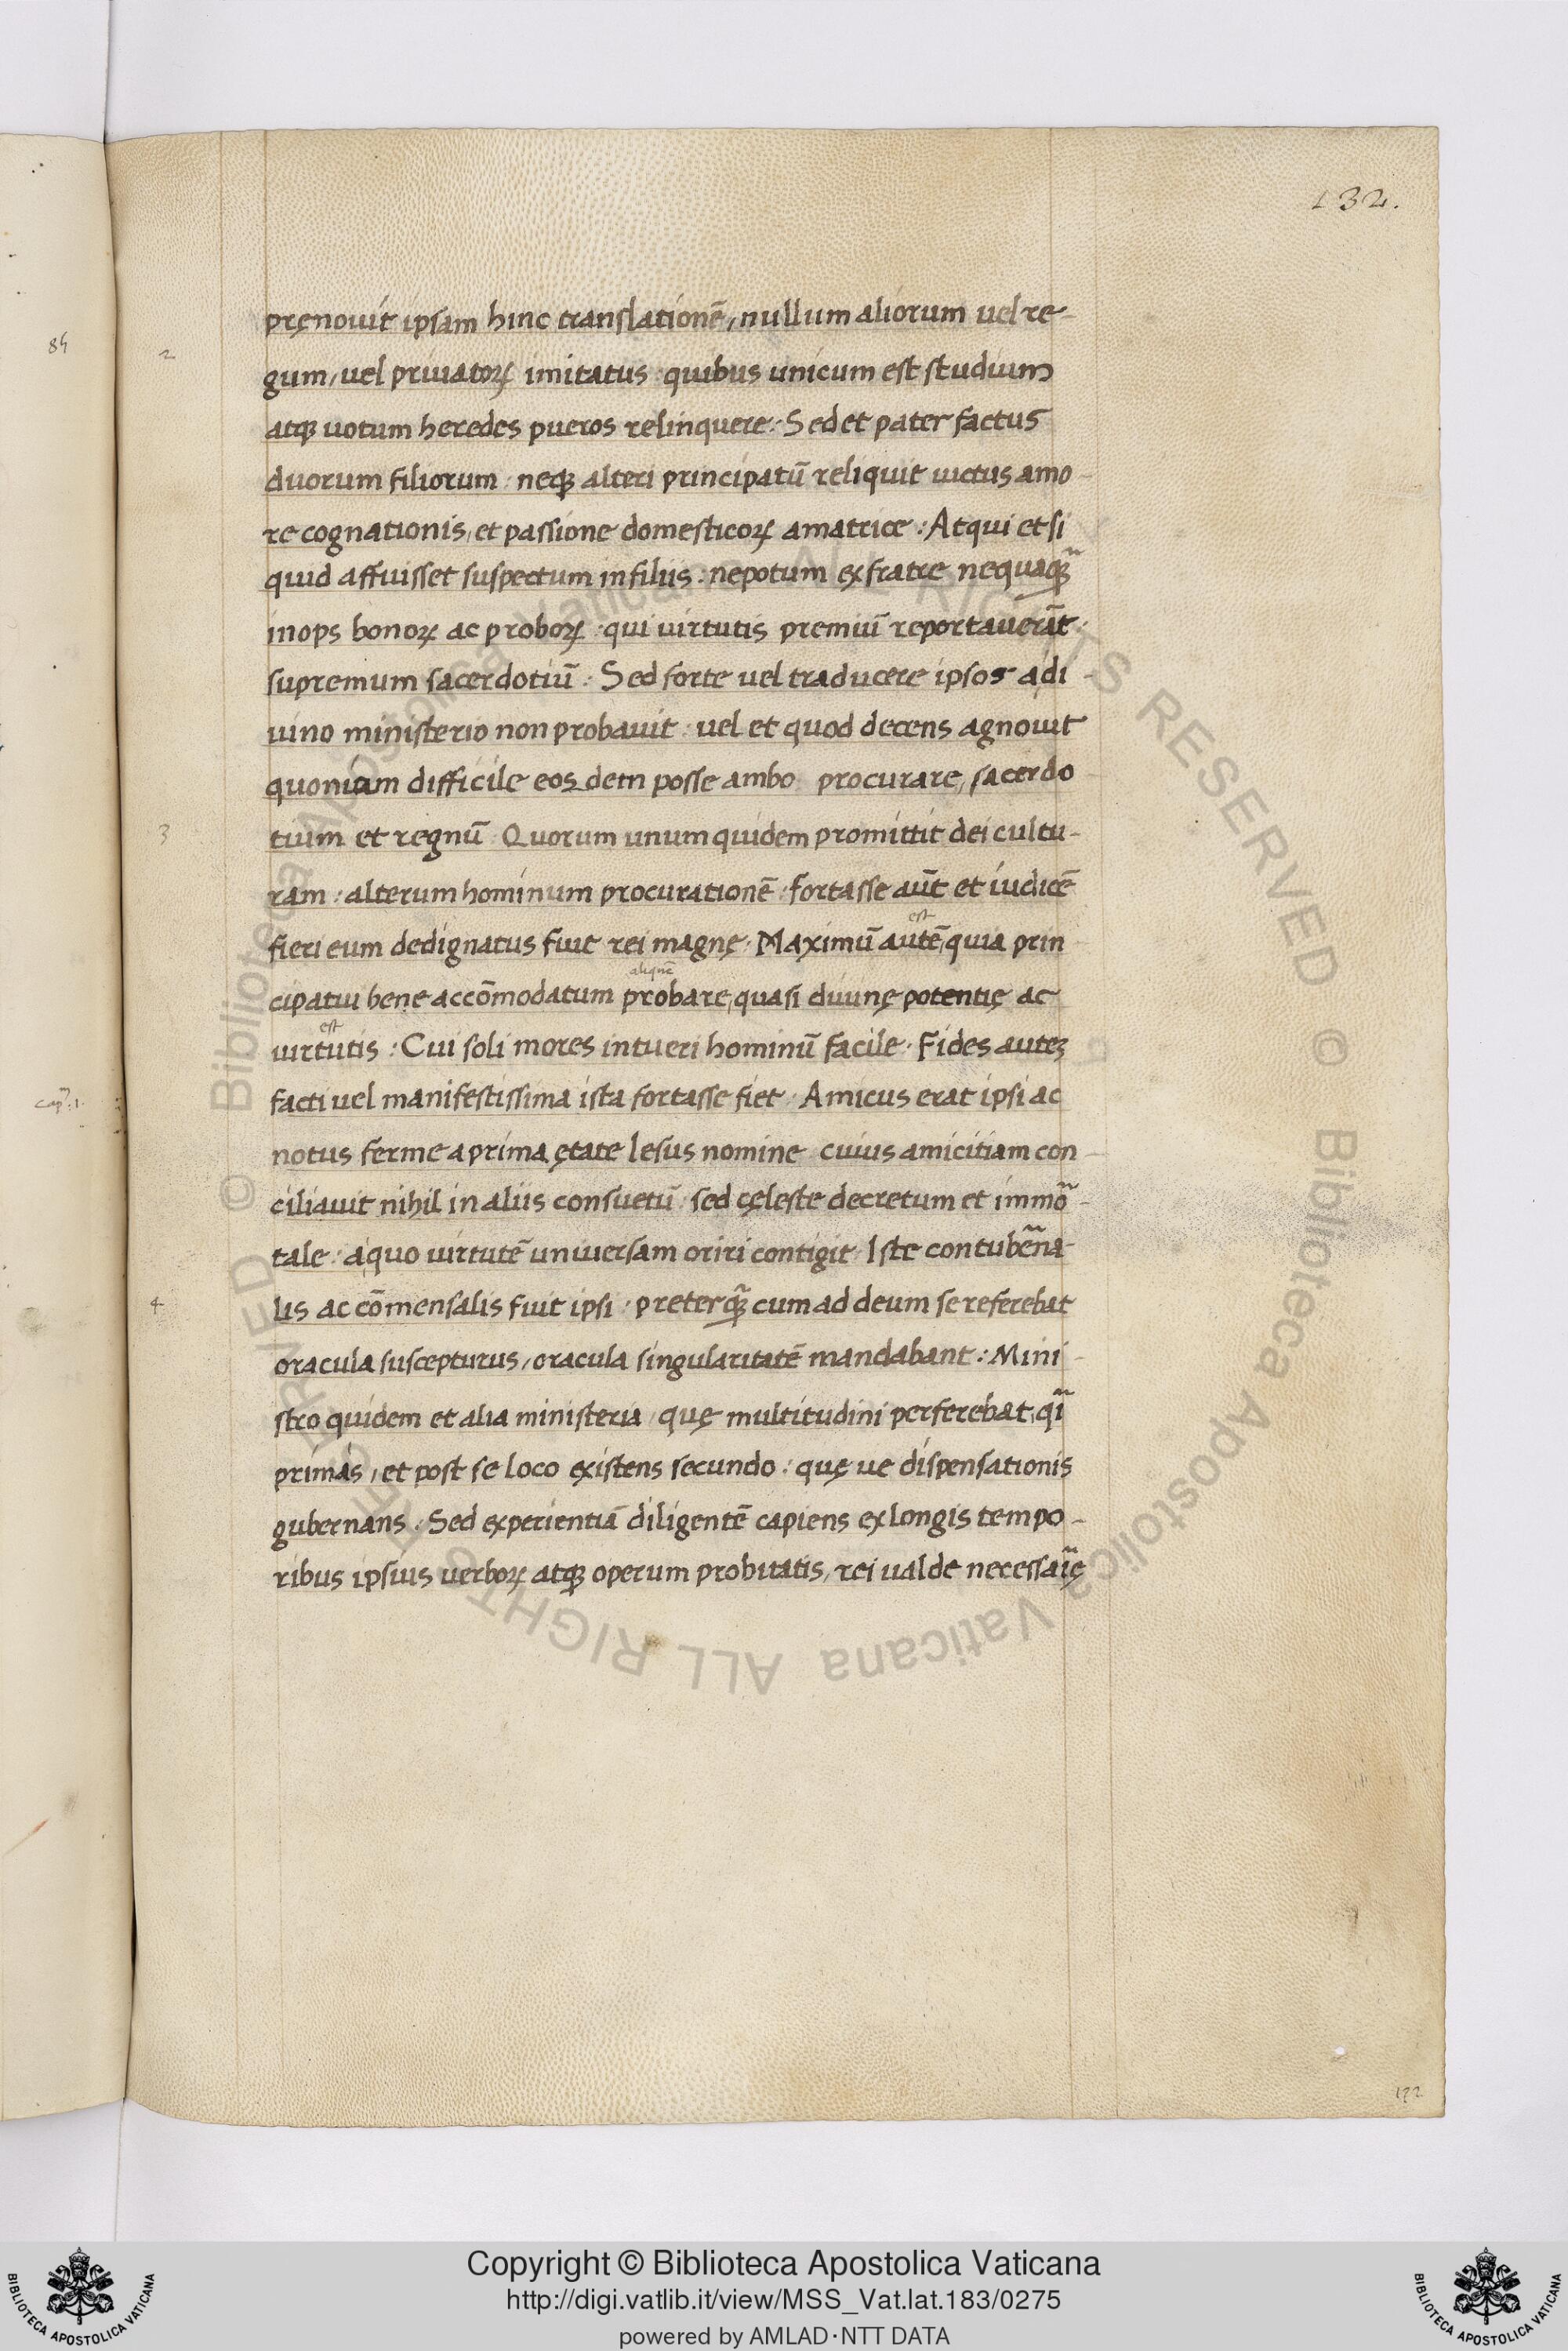 132.
pręnouit ipsam hinc translationē, nullum aliorum uel re-
84
2
gum, uel priuatoꝝ imitatus : quibus unicum est studium
atqꝫ uotum heredes pueros relinquere : Sed et pater factus
duorum filiorum : neqꝫ alteri principatū reliquit uictus amo-
re cognationis, et passione domesticoꝝ amatrice : Atqui et si
quid affuisset suspectum in filiis : nepotum ex fratre nequaqꝫ̃
inops bonoꝝ ac proboꝝ : qui uirtutis premiū reportauerãt :
supremum sacerdotiū : Sed forte uel traducere ipsos a di-
uino ministerio non probauit : uel et quod decens agnouit
quoniam difficile eosdem posse ambo procurare, sacerdo-
3
tium et regnū Quorum unum quidem promittit dei cultu-
ram : alterum hominum procurationē : fortasse aũt et iudicē
fieri eum dedignatus fuit rei magnę : Maximū autē, quia prin-
est
cipatui bene accōmodatum probare, quasi diuinę potentię ac
aliquē
uirtutis : Cui soli mores intueri hominū facile : Fides auteꝫ
est
facti uel manifestissima ista fortasse fiet : Amicus erat ipsi ac
cap. 1.
notus ferme a prima ętate Iesus nomine cuius amicitiam con-
ciliauit nihil in aliis consuetū : sed cęleste decretum et immo᷉-
tale : a quo uirtutē uniuersam oriri contigit : Iste contube᷉na-
4
lis ac cōmensalis fuit ipsi : preterqꝫ̃ cum ad deum se referebat
oracula suscepturus, oracula singularitatē mandabant : Mini-
stro quidem et alia ministeria, quę multitudini perferebat, qi᷉
primas, et post se loco existens secundo : quę ue dispensationis
gubernans : Sed experientiā diligentē capiens ex longis tempo-
ribus ipsius uerboꝝ atqꝫ operum probitatis, rei ualde necessai᷉ę
132
© Biblioteca Apostolica Vaticana ALL RIGHTS RESERVED © Biblioteca Apostolica Vaticana ALL RIGHTS RESERVED
Copyright © Biblioteca Apostolica Vaticana
http://digi.vatlib.it/view/MSS_Vat.lat.183/0275
powered by AMLAD·NTT DATA
BIBLIOTECA APOSTOLICA VATICANA
BIBLIOTECA APOSTOLICA VATICANA